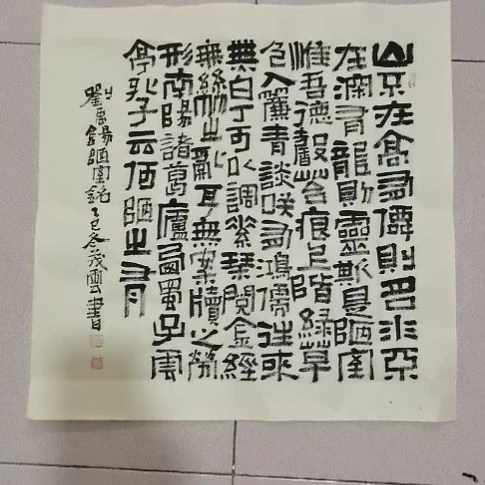 山不在高有僊則名水不
在深有龍則靈斯是陋室
惟吾德馨苔痕上階綠草
色入簾青談咲有鴻儒往來
無白丁可以調素琴閱金經
無絲竹之亂耳無案牘之勞
形南陽諸葛廬西蜀子雲
亭孔子云何陋之有
劉禹錫陋室銘乙巳冬茂雲書